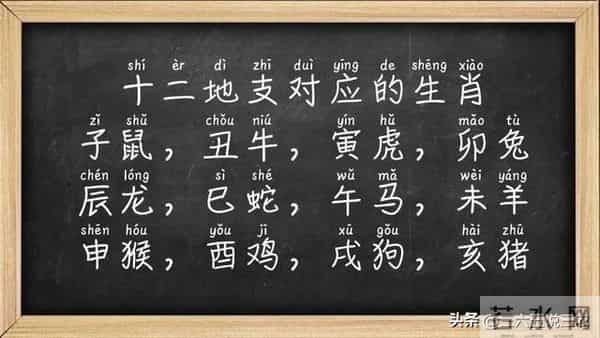 shí èr dì zhī duì yīng de shēng xiào
十二地支对应的生肖
zǐ shǔ chǒu niú yín hǔ mǎo tù
子鼠，丑牛，寅虎，卯兔
chén lóng sì shé wǔ mǎ wèi yáng
辰龙，巳蛇，午马，未羊
shēn hóu yǒu jī xū gǒu hài zhū
申猴，酉鸡，戌狗，亥猪
若水网
头条